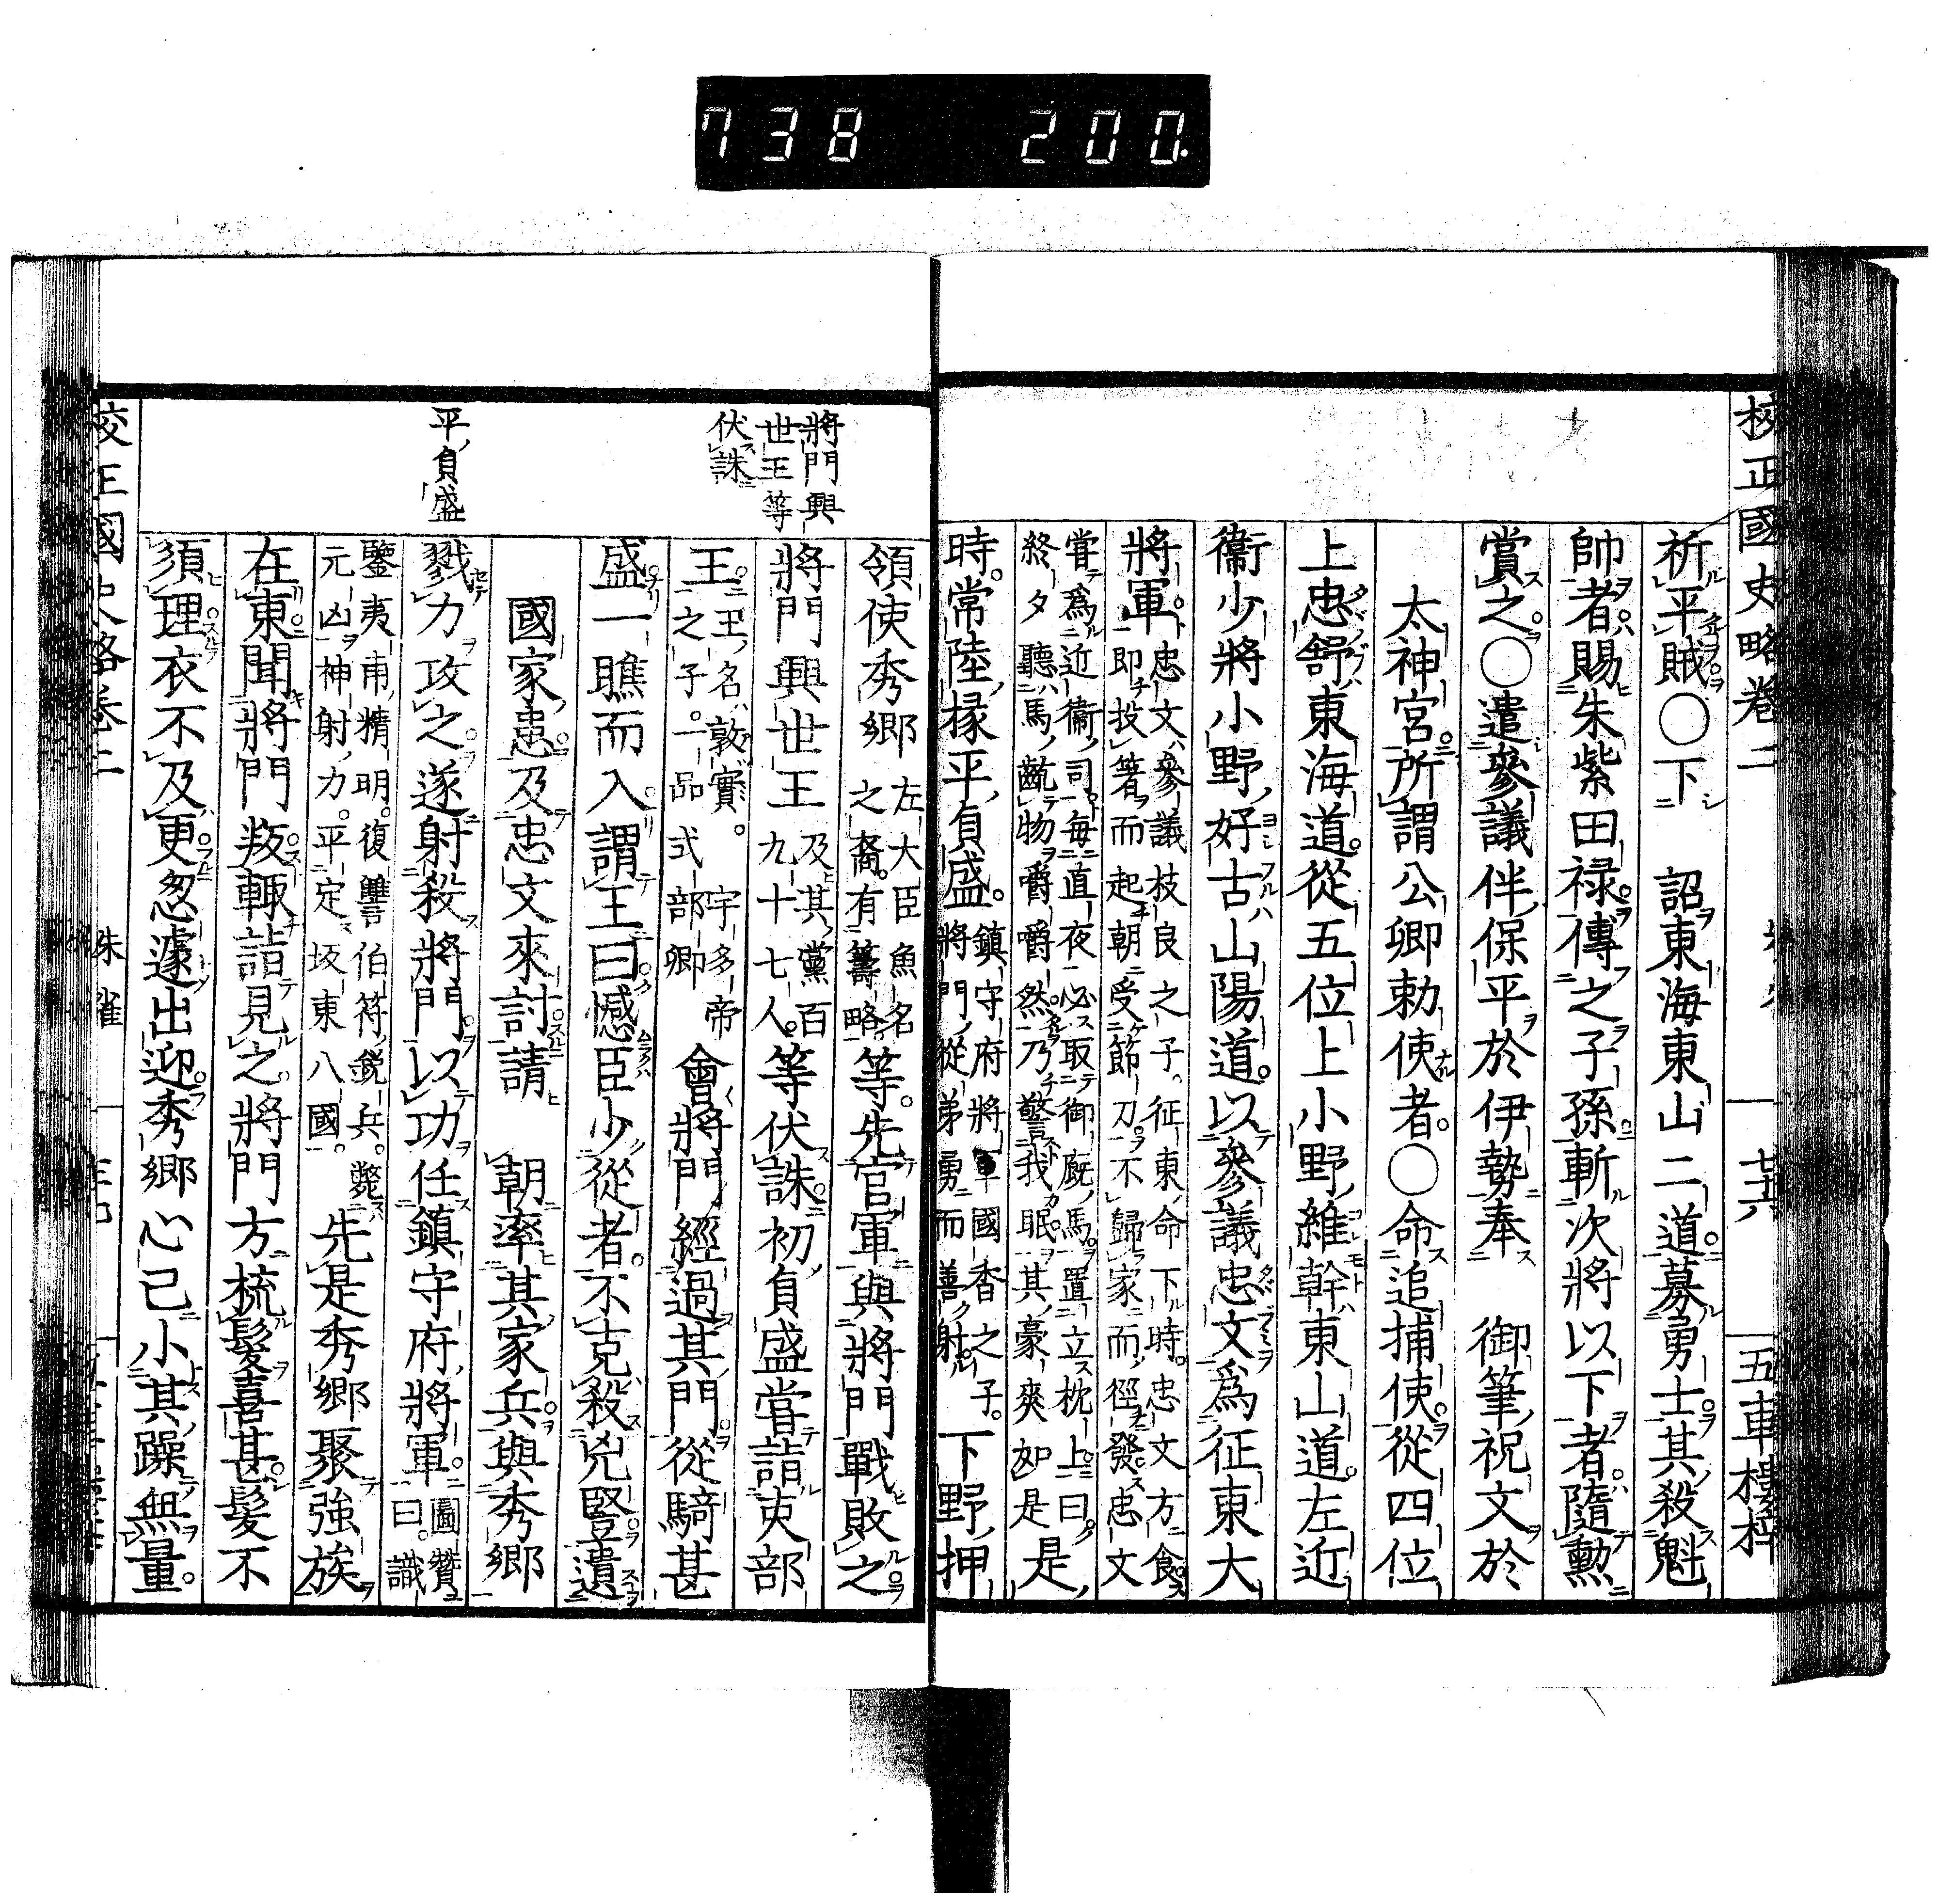 738 200.
校正國史略卷二
七十六
五車樓梓
祈平賊〇下 詔東海東山二道募勇士其殺魁
帥者賜朱紫田祿傳之子孫斬次將以下者隨勳
賞之〇遣參議伴保平於伊勢奉 御筆祝文於
太神宮所謂公卿勅使者〇命追捕使從四位
上忠舒東海道從五位上小野維幹東山道左近
衞少將小野好古山陽道以參議忠文爲征東大
將軍忠文參議枝良之子征東命下時忠文方食
即投箸而起朝受節刀不歸家而徑發忠文
嘗爲近衞司每直夜必取御廐馬置立枕上曰
終夕聽馬齕物嚼嚼然乃警我眠其豪爽如是是
時常陸掾平貞盛鎮守府將軍國香之子
將門從弟勇而善射下野押
將門興
世王等
伏誅
平貞盛
領使秀鄉左大臣魚名
之裔有籌略等先官軍與將門戰敗之
將門興世王及其黨百
九十七人等伏誅初貞盛嘗詣吏部
王王名敦實宇多帝
之子一品式部卿會將門經過其門從騎甚
盛一瞧而入謂王曰憾臣少從者不克殺兇豎遺
國家患及忠文來討請 朝率其家兵與秀鄉
戮力攻之遂射殺將門以功任鎮守府將軍圖贊
曰識
鑒夷甫精明復讐伯符銳兵斃
元凶神射力平定坂東八國先是秀鄉聚強族
在東聞將門叛輙詣見之將門方梳髮喜甚髮不
須理衣不及更怱遽出迎秀鄉心已小其躁無量
校正國史略卷二
朱雀